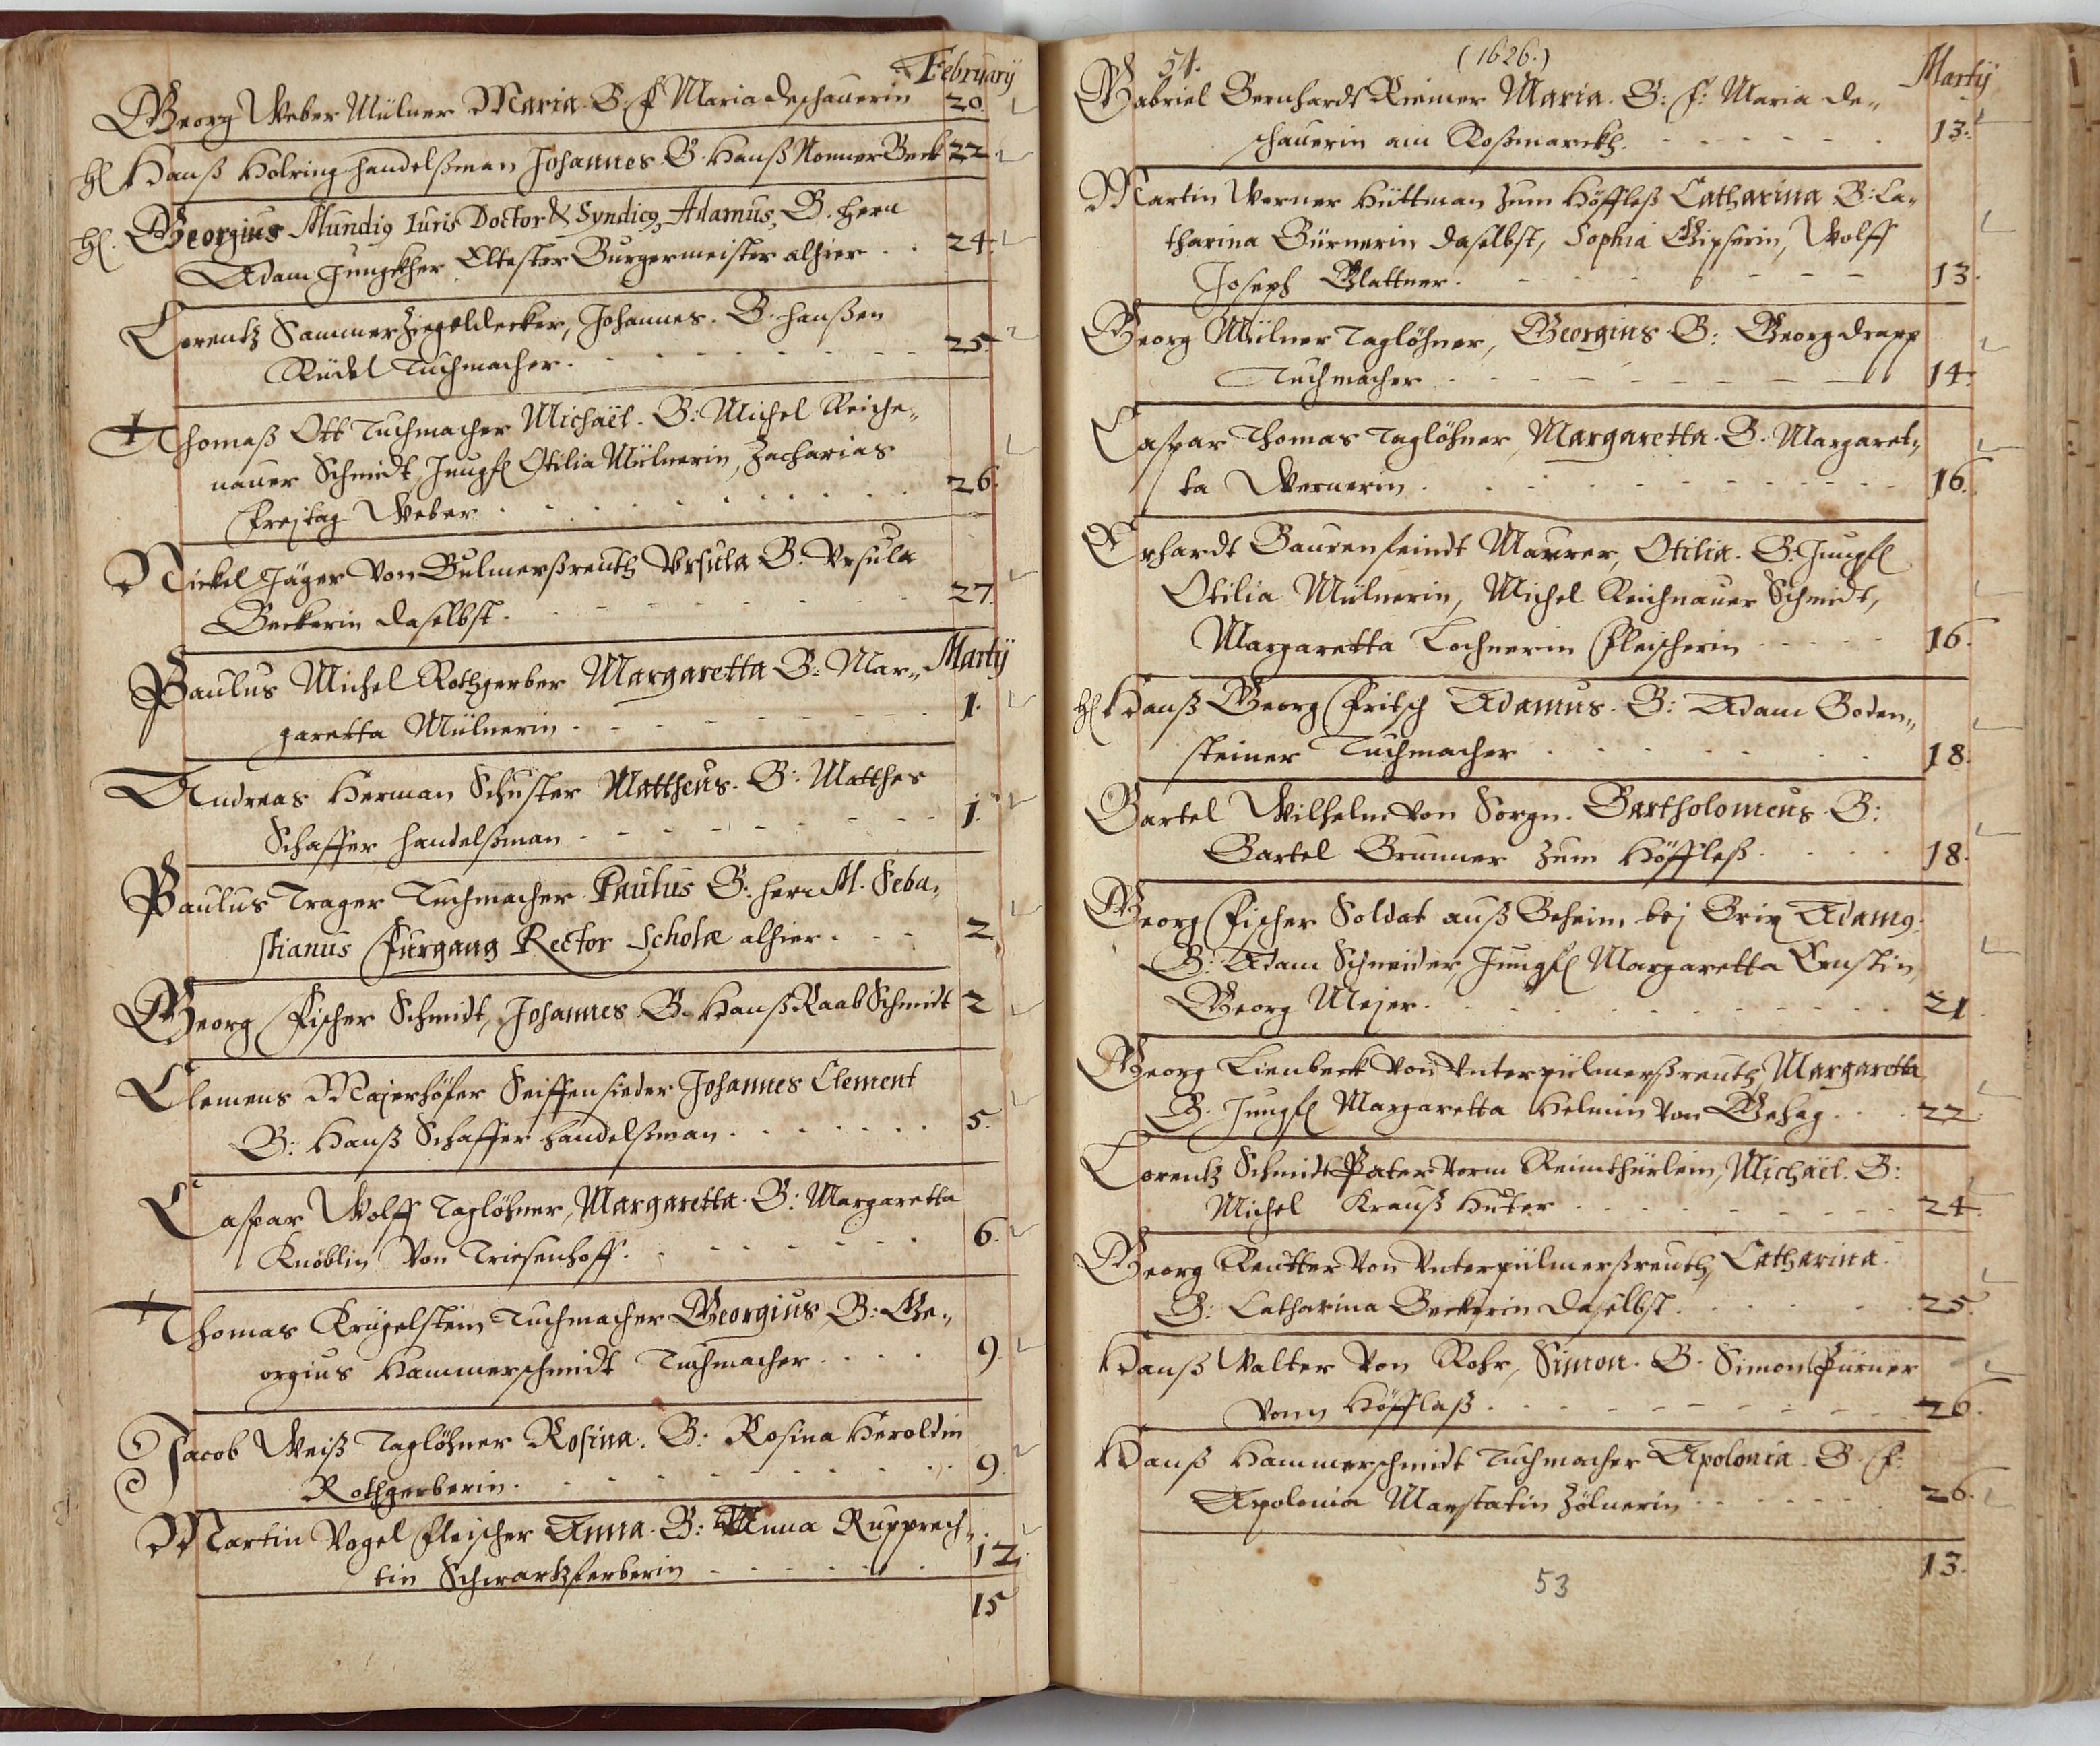 February
Georg Weber Mülner Maria. G. F. Maria deschauerin 20.
H Hanß Holring handelßman Johannes. G. Hanß Nonner Beck 22.
H. Georgius Mundig Iuris Doctor & Syndicg, Adamus, G. Herr
Adam Jungkher Eltester Burgermeister alhier . . 24.
Lorentz Sammer Ziegeldecker, Johannes. G. Hanßen
Rüdel Tuchmacher. 25.
Thomaß Ott Tuchmacher Michaël. G: Michel Reiche„
nauer Schmidt, Jungf Otilia Mülnerin, Zacharias
Freytag Weber 26.
Nickel Jäger Von Gulmerßreuth Vrsula G. Vrsula
Beckerin daselbst. 27.
Paulus Michel Rothgerber Margaretta G: Mar„ Martij
garetta Mülnerin 1.
Andreas Herman Schuster Mattheus. G: Matthes
Schaffer handelßman 1.
Paulus Trager Tuchmacher Paulus G: Herr M. Seba„
stianus Furgang Rector Scholæ alhier. 2
Georg Fischer Schmidt, Johannes G. Hanß Raab Schmidt 2
Clemens Majerhöfer Seiffensieder Johannes Clement
G: Hanß Schaffer handelßman 5.
Caspar Wolff Taglöhner, Margaretta. G: Margaretta
Knöblin Von Triesenhoff. 6.
Thomas Krügelstein Tuchmacher Georgius, G: Ge„
orgius Hammerschmidt Tuchmacher 9.
Jacob Weiß Taglöhner Rosina. G: Rosina Heroldin
Rothgerberin. 9.
Martin Vogel Fleischer Anna. G: Anna Rupprech„
tin Schwartzferberin 12.
15
54. (1626.) Martij
Gabriel Bernhardt Riemer Maria. G: F: Maria de„
schauerin am Roßmarckh. 13.
Martin Werner Hüttman Zum Höffleß Catharina G: Ca„
tharina Gürnerin daselbst, Sophia Gipserin, Wolff
Joseph Glattner. 13.
Georg Mülner Taglöhner, Georgius G: Georg drapp
Tuchmacher 14.
Caspar Thomas Taglöhner, Margaretta. G. Margaret„
ta Wernerin. 16.
Erhardt Baurenfeindt Maurer, Otilia. G: Jungf
Otilia Mülnerin, Michel Reichnauer Schmidt,
Margaretta Lochnerin Fleischerin 16.
H Hanß Georg Fritsch Adamus. G: Adam Boden„
steiner Tuchmacher 18.
Bartel Wilhelm Von Sorgn. Bartholomeus. G:
Bartel Brunner Zum Höffleß 18.
Georg Fischer Soldat auß Beheim bej Brix Adamg.
G: Adam Schneider, Jungf Margaretta Ernstin,
Georg Mejer. 21
Georg Lienbeck Von Vnterpülmerßreuth, Margaretta
G. Jungf Margaretta Helmin Von Gehag 22
Lorentz Schmidt Pater Vorm Reimthürlein, Michaël. G:
Michel Krauß Huter 24.
Georg Reutter Von Vnterpülmerßreuth, Catharina.
G: Catharina Beckerin daselbst. 25.
Hanß Walter Von Rohr, Simon. G. Simon Pürner
Vonn Höfflaß. 26.
Hanß Hammerschmidt Tuchmacher Apolonia. G. F:
Apolonia Marstatin Zölnerin 26.
13.
53